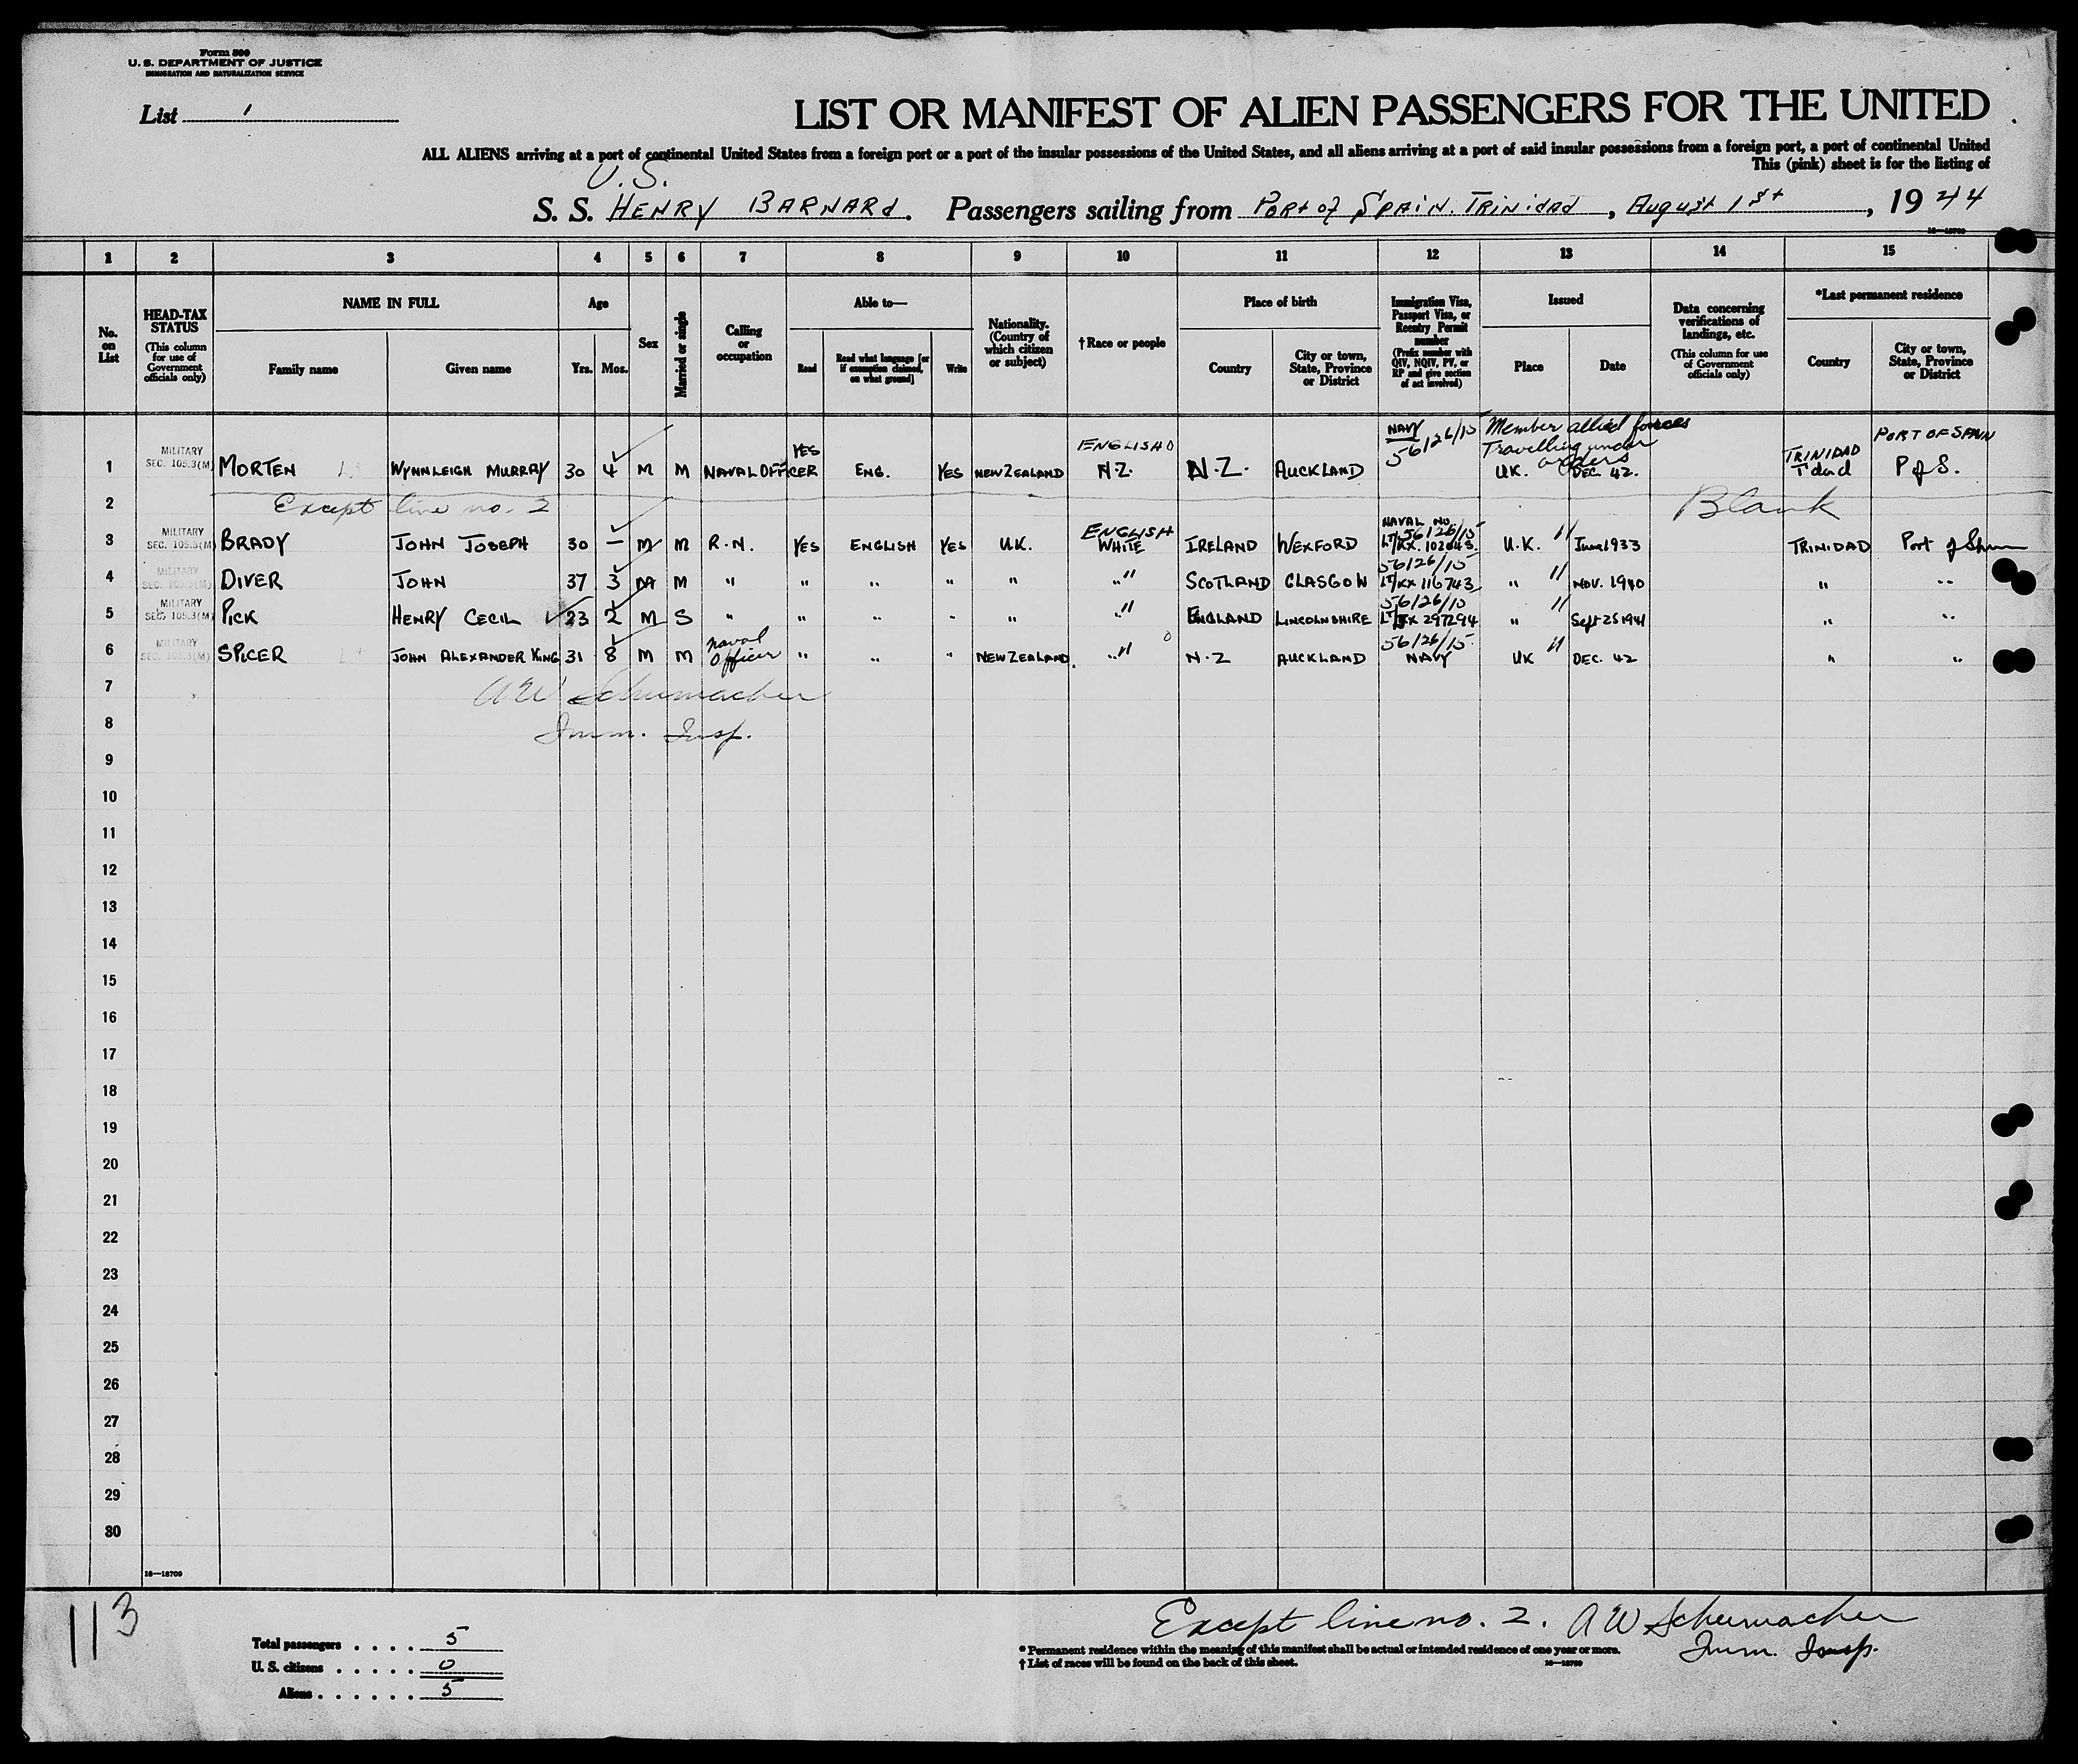 Form 500
U. S. DEPARTMENT OF JUSTICE
IMMIGRATION AND NATURALIZATION SERVICE
List 1
LIST OR MANIFEST OF ALIEN PASSENGERS FOR THE UNITED
ALL ALIENS arriving at a port of continental United States from a foreign port or a port of the insular possessions of the United States, and all aliens arriving at a port of said insular possessions from a foreign port, a port of continental United
This (pink) sheet is for the listing of
U.S.
S. S. HENRY BARNARd. Passengers sailing from PORt of SPAiN. TRiNidAd, August 1st, 19 44
16—18709
1 2 3 4 5 6 7 8 9 10 11 12 13 14 15
No. on List
HEAD-TAX STATUS (This column for use of Government officials only)
NAME IN FULL
Family name Given name
Age
Yrs. Mos.
Sex
Married or single
Calling or occupation
Able to—
Read Read what language [or if exemption claimed, on what ground] Write
Nationality. (Country of which citizen or subject)
† Race or people
Place of birth
Country City or town, State, Province or District
Immigration Visa, Passport Visa, or Reentry Permit number (Prefix number with QIV, NQIV, PV, or RP and give section of act involved)
Issued
Place Date
Data concerning verifications of landings, etc. (This column for use of Government officials only)
*Last permanent residence
Country City or town, State, Province or District
NAVY 56/26/15 Member allied forces Travelling under orders
YES ENGLISH TRINIDAD PORT OF SPAIN
1 MILITARY SEC. 105.3(M) MORTEN Lt WYNNLEIGH MURRAY 30 4 M M NAVAL OFFICER ENG. YES NEW ZEALAND N.Z. N.Z. AUCKLAND UK. DEC. 42. T'dad P of S.
2 Except line no. 2 Blank
3 MILITARY SEC. 105.3(M) BRADY JOHN JOSEPH 30 — M M R.N. YES ENGLISH YES U.K. ENGLISH WHITE IRELAND WEXFORD NAVAL NO. 56/26/15 U.K. " June 1933 TRINIDAD Port of Spain
4 MILITARY SEC. 105.3(M) DIVER JOHN 37 3 M M " " " " " " SCOTLAND GLASGOW 56/26/15 LT/KX 116743 " " NOV. 1940 " "
5 MILITARY SEC. 105.3(M) PICK HENRY CECIL 23 2 M S " " " " " " ENGLAND LINCOLNSHIRE 56/26/15 " " Sept 25 1941 " "
6 MILITARY SEC. 105.3(M) SPICER Lt JOHN ALEXANDER KING 31 8 M M Naval Officer " " " NEW ZEALAND. " N.Z AUCKLAND 56/26/15 NAVY UK " DEC. 42 " "
7 A W Schumacher
8 Imm. Insp.
9
10
11
12
13
14
15
16
17
18
19
20
21
22
23
24
25
26
27
28
29
30
16—18709
113
Total passengers . . . . 5
U. S. citizens . . . . . 0
Aliens . . . . . . 5
Except line no. 2. A W Schumacher
Imm. Insp.
* Permanent residence within the meaning of this manifest shall be actual or intended residence of one year or more.
† List of races will be found on the back of this sheet.
16—18709